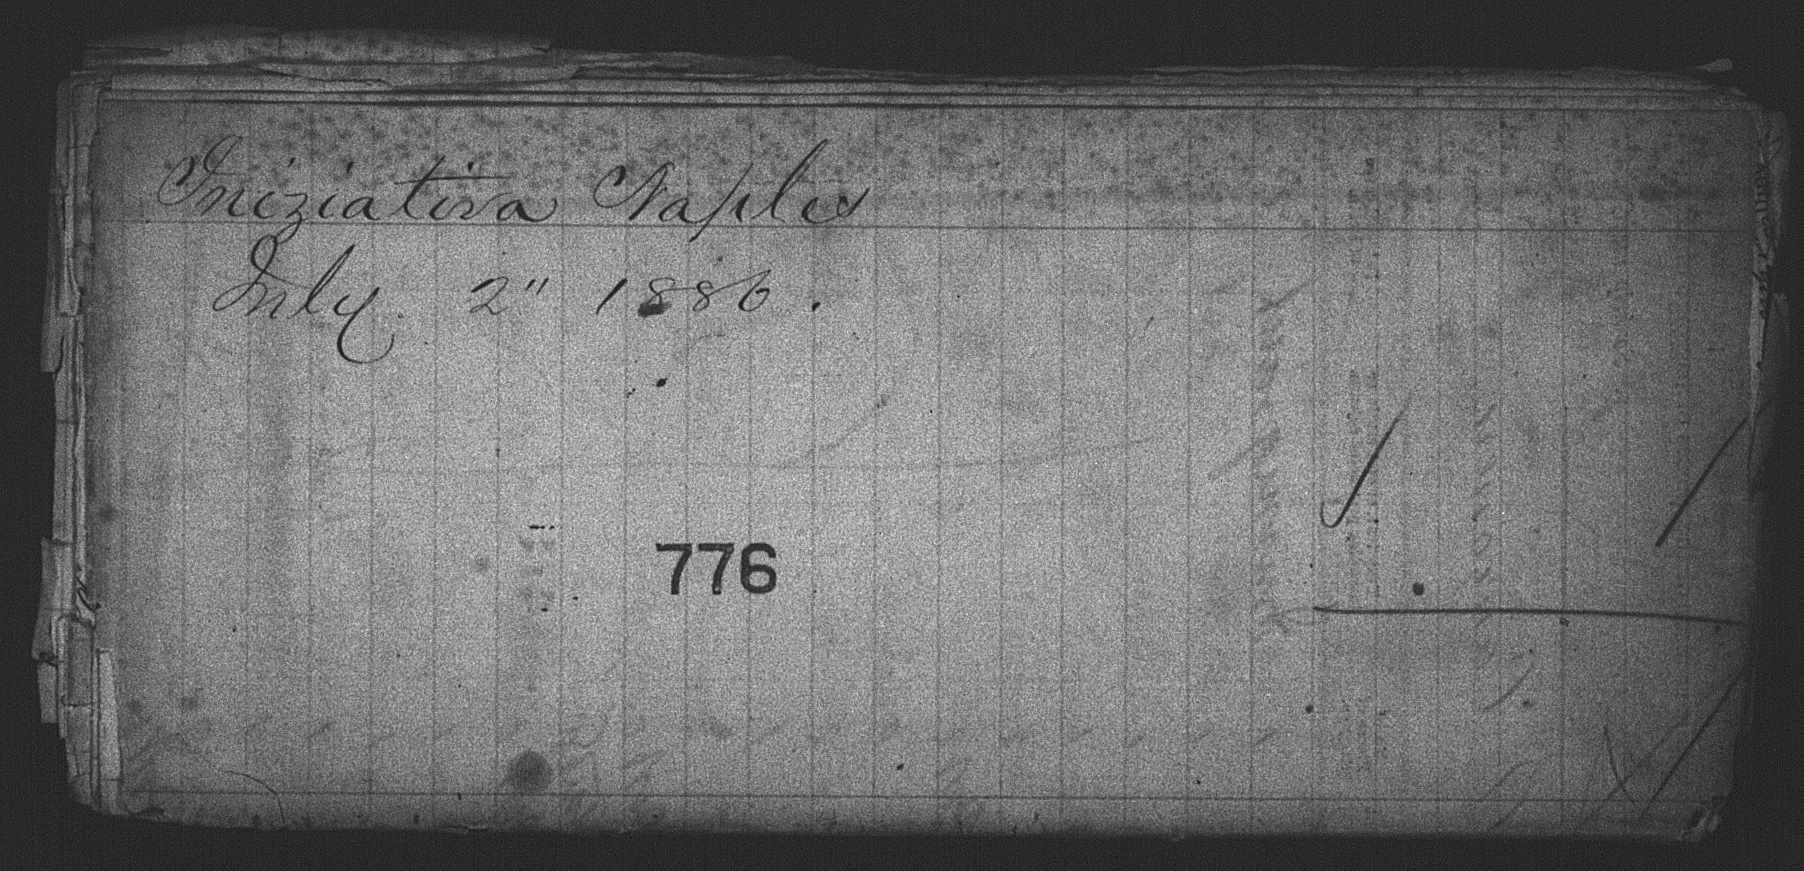 Iniziativa Naples
July 2" 1886.
776